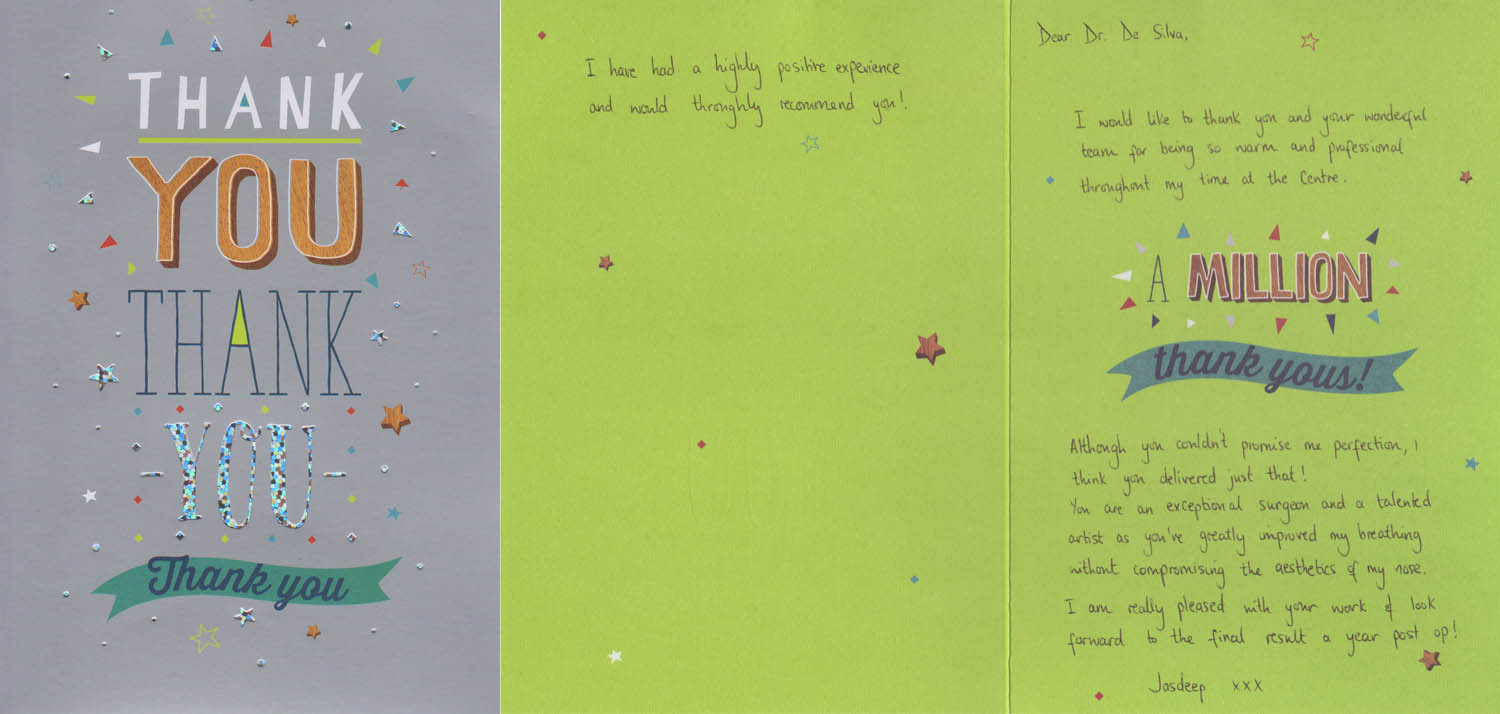 THANK
YOU
THANK
YOU
Thank you
I have had a highly positive experience
and would throughly recommend you!
Dear Dr. De Silva,
I would like to thank you and your wonderful
team for being so warm and professional
throughout my time at the Centre.
A MILLION
thank yous!
Although you couldn't promise me perfection, I
think you delivered just that!
You are an exceptional surgeon and a talented
artist as you've greatly improved my breathing
without compromising the aesthetics of my nose.
I am really pleased with your work & look
forward to the final result a year post op!
Jasdeep xxx